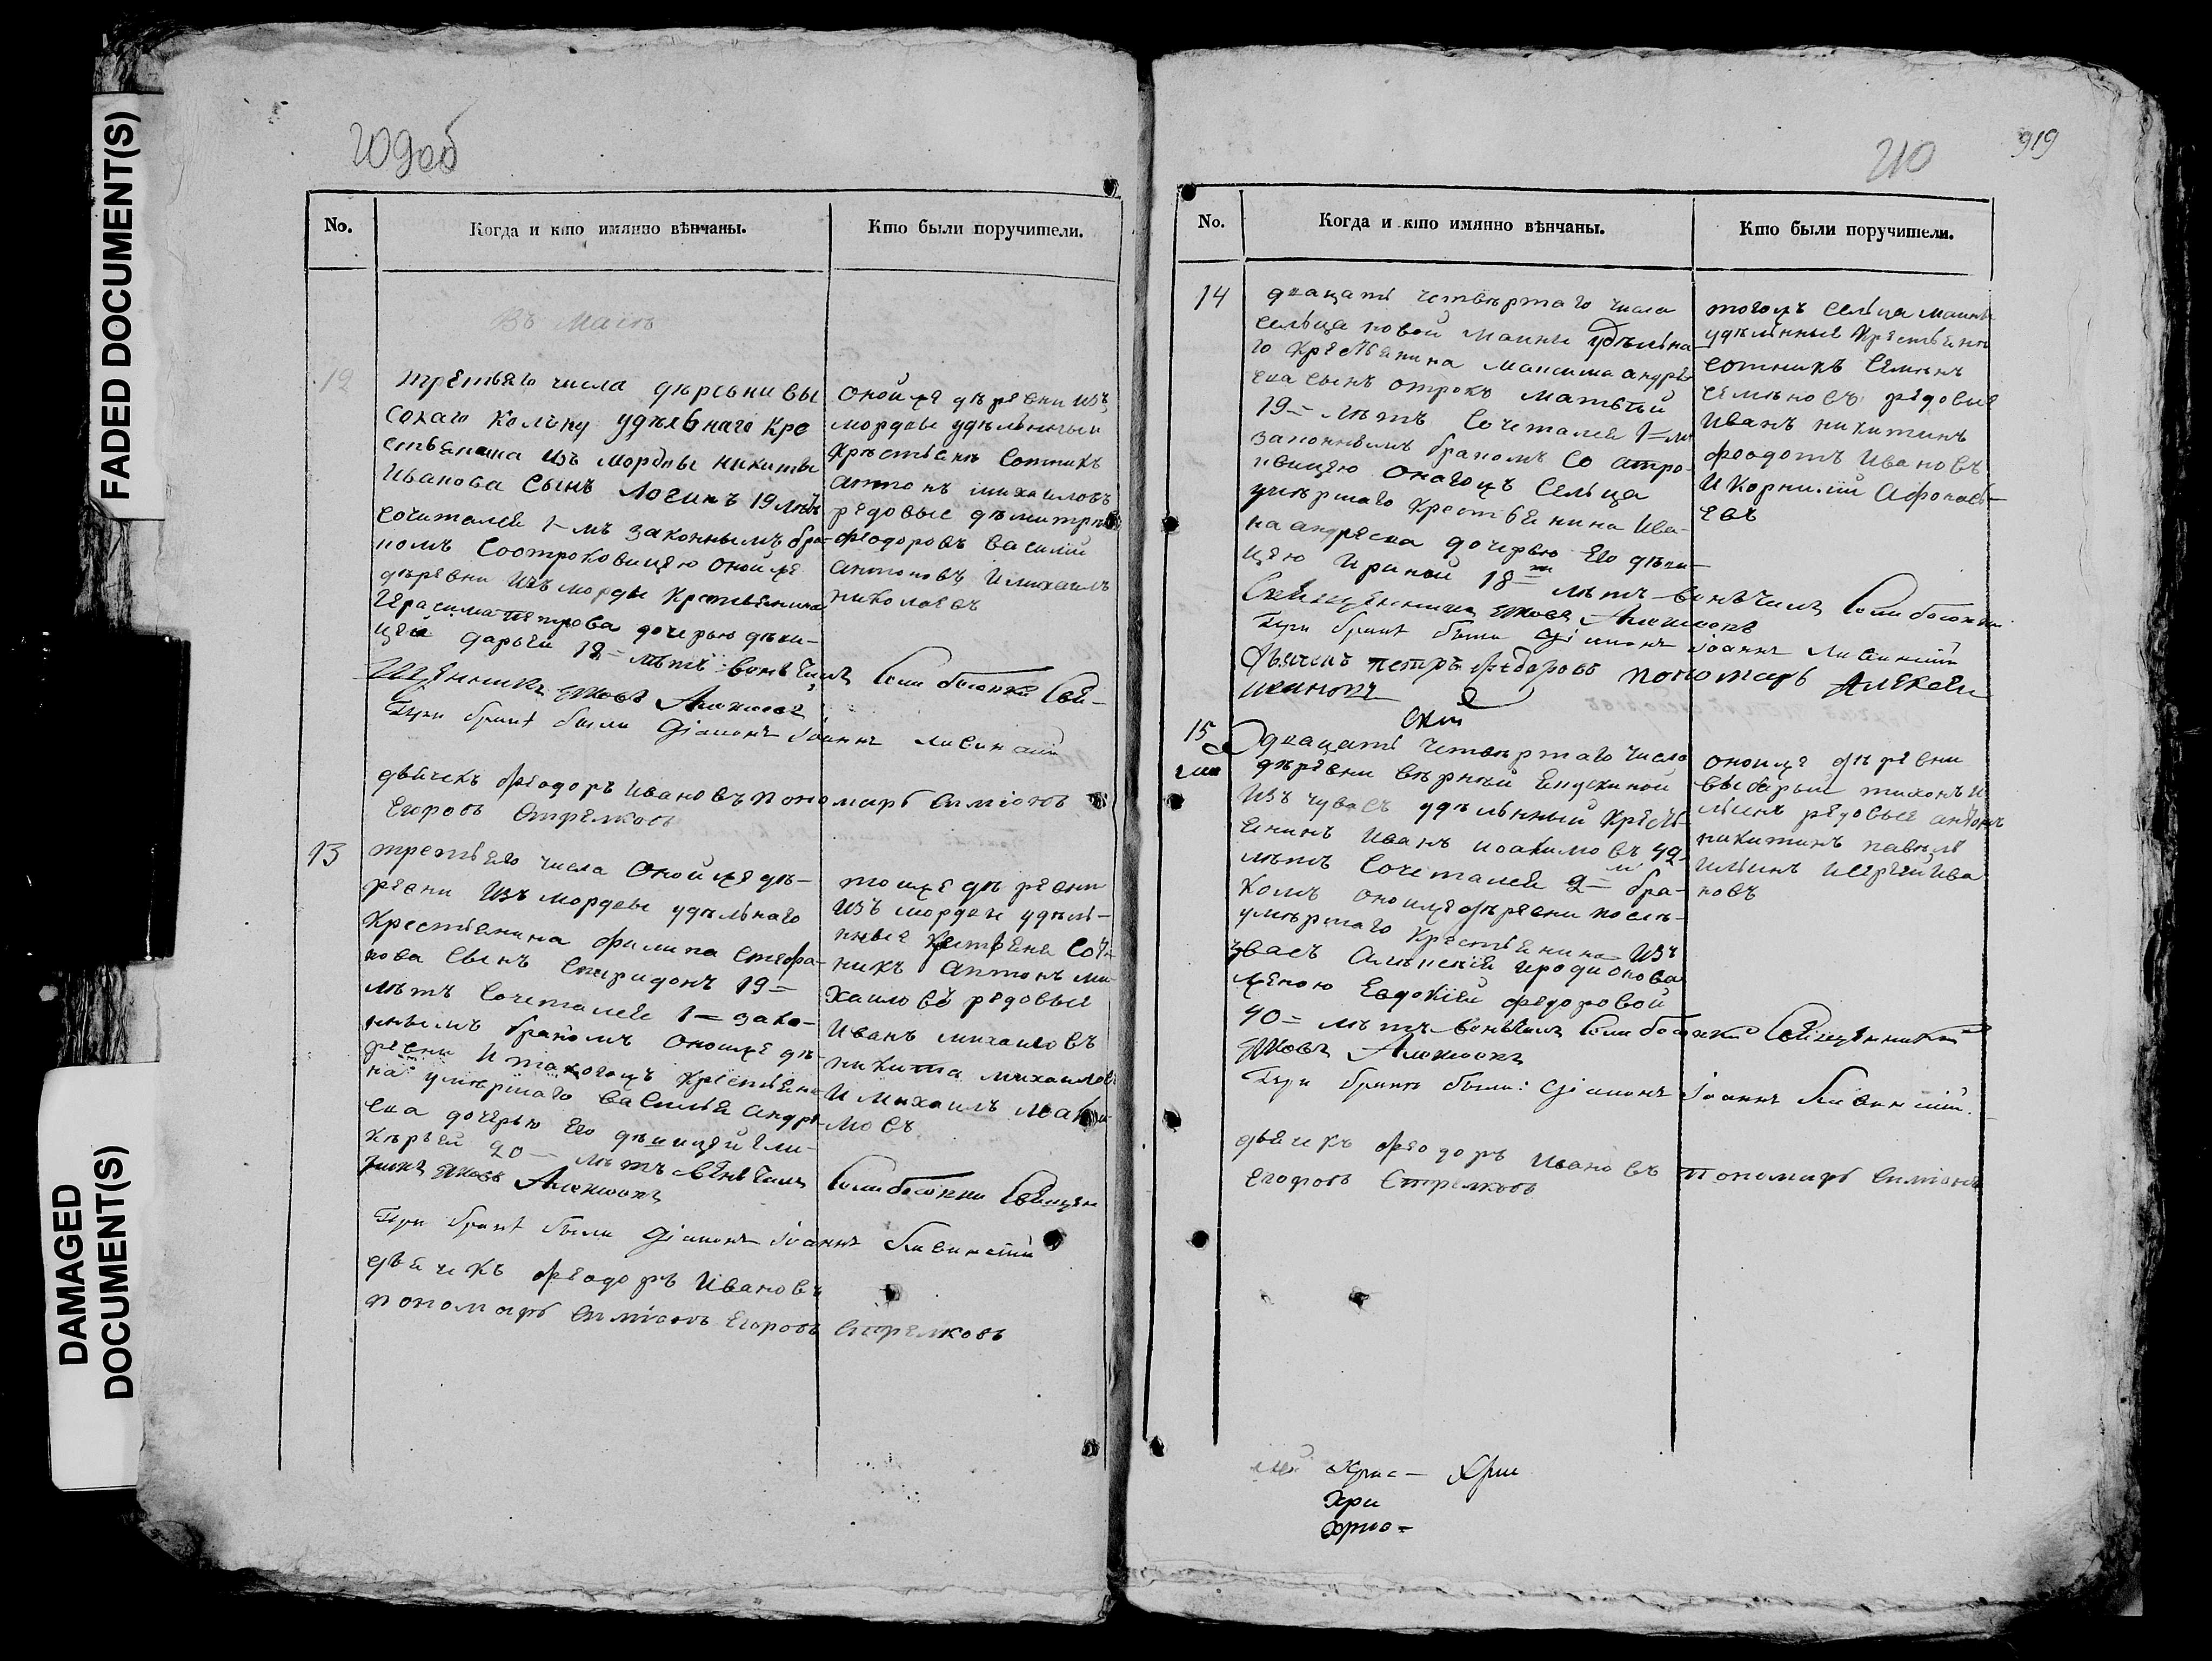 FADED DOCUMENT(S)
DAMAGED
DOCUMENT(S)
209об
No.
Когда и кто имянно вѣнчаны.
Кто были поручители.
Въ Маiѣ
12
третьяго числа дѣревни вы
сокаго Колъку удѣлбнаго Кре
стьянина изъ мордвы никиты
Иванова Сынъ Логинъ 19 лѣтъ
сочитался 1-мъ законнымъ бра-
комъ Соотроковицею онойже
дѣревни Изъ морды Крстьянина
Герасима петрова дочерью дѣви-
цей дарьей 18 = лѣтъ
Яковъ
При бракѣ были Дiаконъ Iоаннъ
дьячекъ феодоръ Ивановъ пономарь Симiонъ
Егоровъ Стрелковъ
онойже дѣревни изъ
мордвы удѣльныи
Крѣстьянѣ Сотникъ
антонъ михаиловъ
редовые дѣмитрѣй
феодоровъ василий
антоновъ Имихаилъ
николаевъ
13
третьяго числа Онойже дѣ-
ревни Изъ мордвы удѣльнаго
Крестьянина филипа стефа-
нова Сынъ Спиридонъ 19 =
лѣтъ Сочетался 1 = зако-
ннымъ бракомъ Онойже дѣ-
ревни Итакогожъ Крестьяни
на умѣршаго василья андрѣ
ева дочерью его дѣвицей гли-
кѣрьей 20 = лѣтъ
Яковъ
При бракѣ были Дiаконъ Iоаннъ
дьячекъ феодоръ Ивановъ
пономарь Симiонъ Егоровъ Стрелковъ
тойже дѣревни
Изъ мордвы удѣль-
ныя Крестьяне Сот
никъ антонъ ми
хаиловъ редовыя
Иванъ михаиловъ
никита михаиловъ
И михаилъ
мовъ
210
919
No.
Когда и кто имянно вѣнчаны.
Кто были поручители.
14
двацать четвѣртаго числа
Сельца новой маины удѣльна
го Крестьянина максима андрѣ
ева сынъ отрокъ матвѣй
19 = лѣтъ Сочетался 1 = мъ
законнымъ бракомъ Со отро-
ковицею Онагожъ Сельца
умѣршаго Крестбянина Ива-
на андреева дочерью Его дѣви-
цею Ириной 18 = лѣтъ
Яковъ
При бракѣ были Дiаконъ Iоаннъ
Дьячекъ петръ феодоровъ пономарь Алексѣй
Ивановъ
тогожъ Сельца маины
удѣльныя Крестьяни
сотникъ Семѣнъ
Семѣновъ редовые
Иванъ никитинъ
феодотъ Ивановъ
И Корнилий Афонась-
евъ
15
двацать Четвѣртаго Числа
дѣревни вѣрхней
Изъ чувасъ удѣльнный Крестѣ
янинъ Иванъ иоакимовъ 42
лѣтъ Сочетался 2 = мъ бра-
комъ онойже дѣревни послѣ-
умѣршаго Крестьянина Изъ
чвасъ Иродионова
женою Евдокiей федоровой
40 = лѣтъ
Яковъ
При бракѣ были: Дiаконъ Iоаннъ
дьячекъ феодоръ Ивановъ пономарь Симiонъ
Егоровъ Стрелковъ
онойже дѣревни
выбарный тихонъ И
льинъ редовые антонъ
никитинъ павѣлъ
ильинъ исергей Ива
новъ
Хрис - Хри
Хри
Хрис -